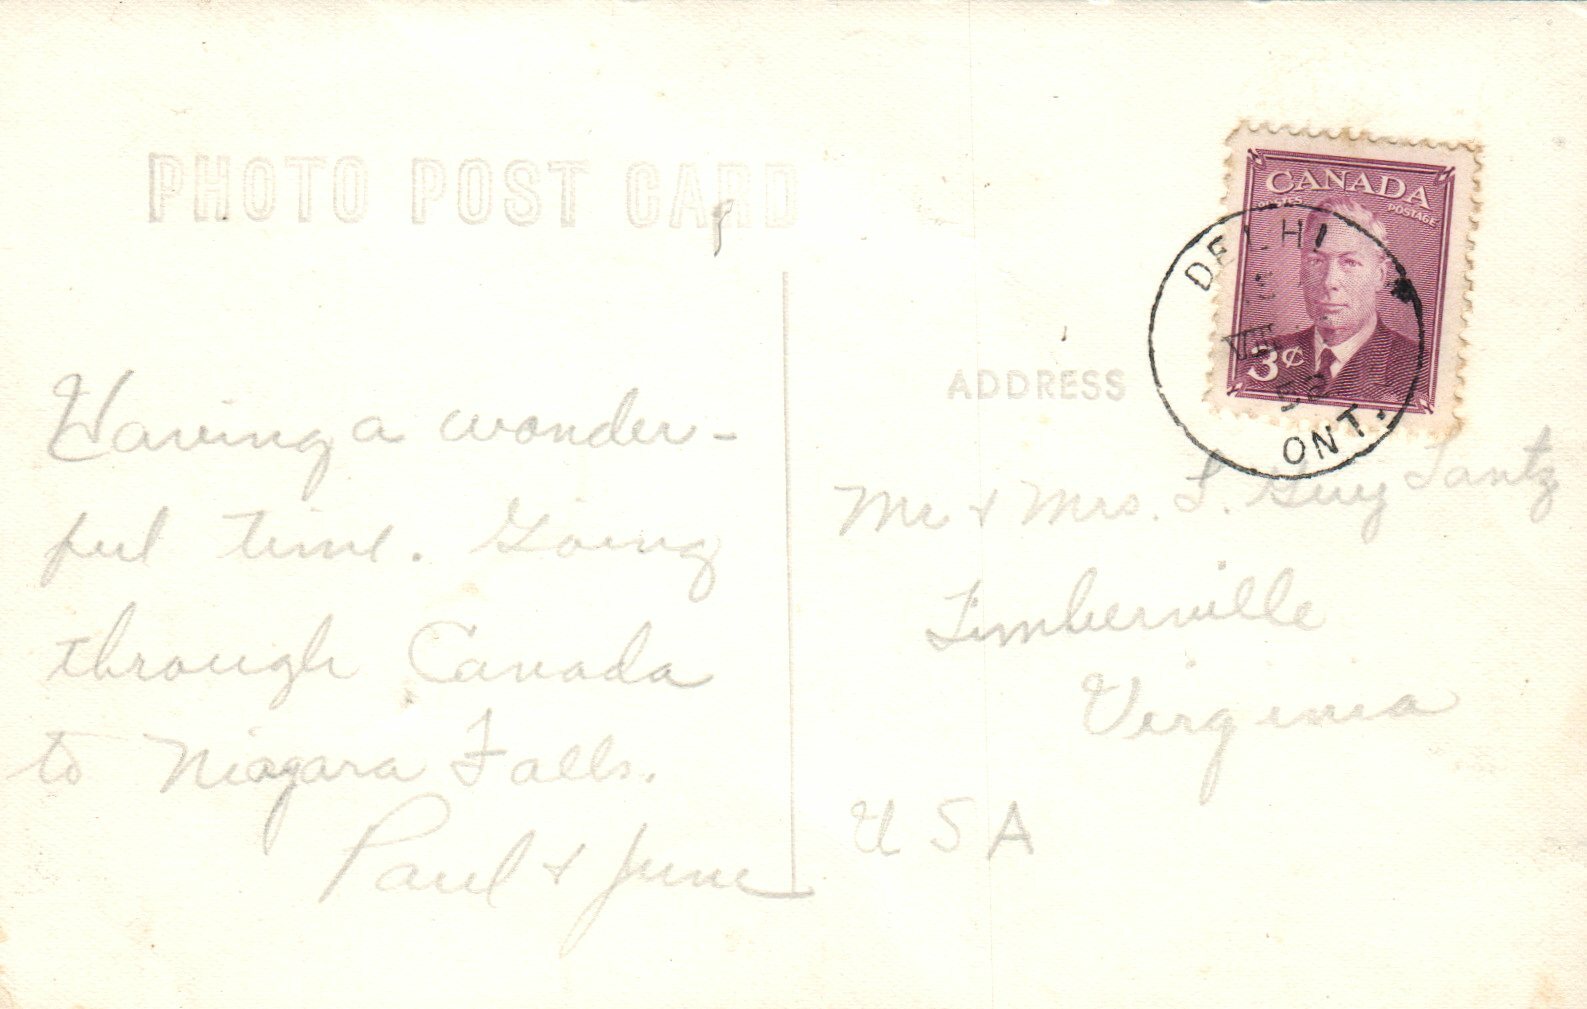 PHOTO POST CARD
CANADA
POSTES POSTAGE
3¢
DELHI
VII
52
ONT.
ADDRESS
Having a wonder-
ful time. Going
through Canada
to Niagara Falls.
Paul & June
Mr & Mrs. L. Guy Lantz
Timberville
Virginia
USA